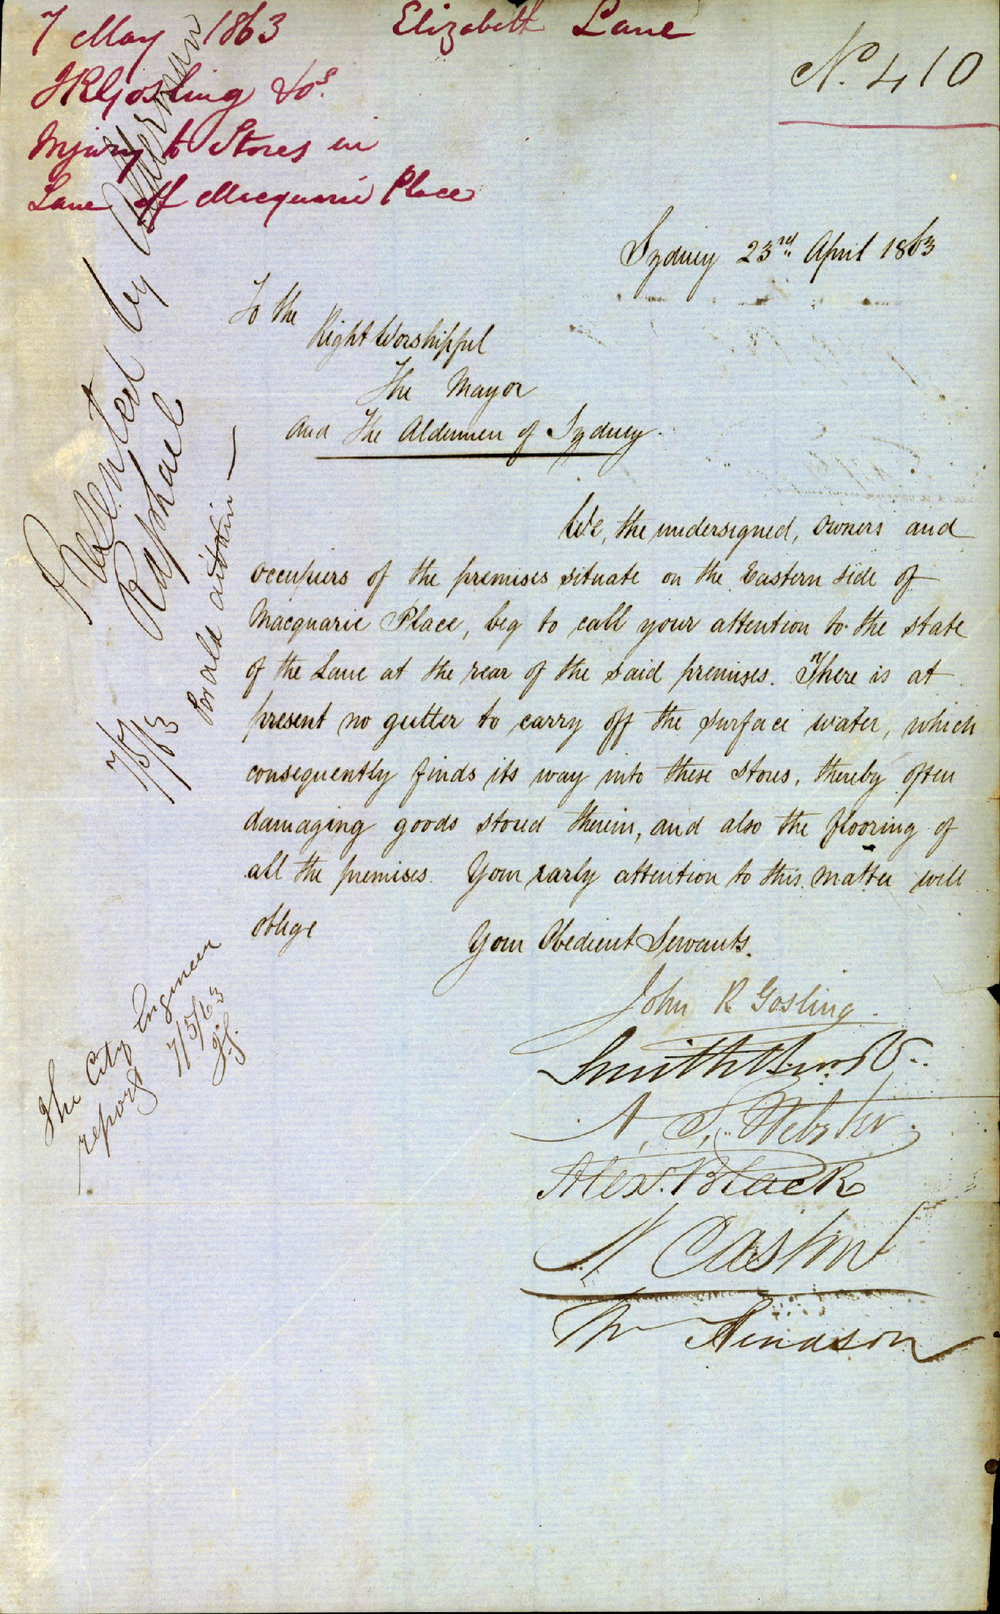 7 May 1863 Elizabeth Lane
No. 410
J R Gosling & Ors.
Injury to Stores in
Lane off Macquarie Place
Sydney 23rd. April 1863
To the
Right Worshipful
The Mayor
And The Aldermen of Sydney.
We, the undersigned, owners and
occupiers of the premises situate on the Eastern side of
Macquarie Place, beg to call your attention to the state
of the Lane at the rear of the said premises. There is at
present no gutter to carry off the surface water, which
consequently finds its way into these stores, thereby often
damaging goods stored therein, and also the flooring of
all the premises. Your early attention to this matter will
oblige
Your Obedient Servants.
John R Gosling.
Smith
A. S. Webster.
Alexr. Black
N Caston
Presented by Alderman
Raphael
7/5/63
The City Engineer
report 7/5/63